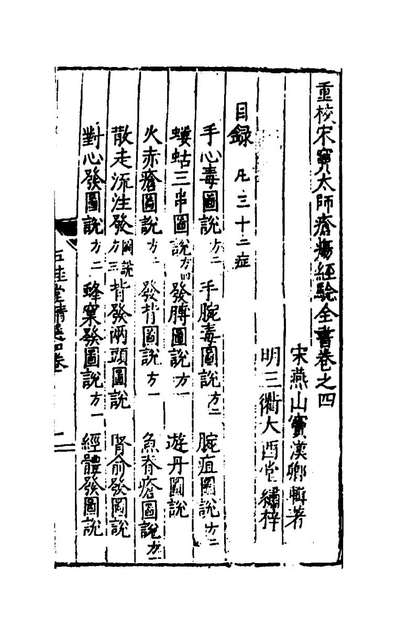 重校宋竇太師瘡瘍經驗全書卷之四
宋燕山竇漢卿輯著
明三衢大酉堂繡梓
目録 凡三十二症
手心毒圖説方二 手腕毒圖説方二 腕疽圖説方二
螻蛄三串圖説方四 發膊圖説方一 遊丹圖説
火赤瘡圖説方二 發背圖説方一 魚脊瘡圖説方二
散走流注發圖説方三 背發兩頭圖説 腎俞發圖説
對心發圖説方二 蜂窠發圖説方一 經體發圖説